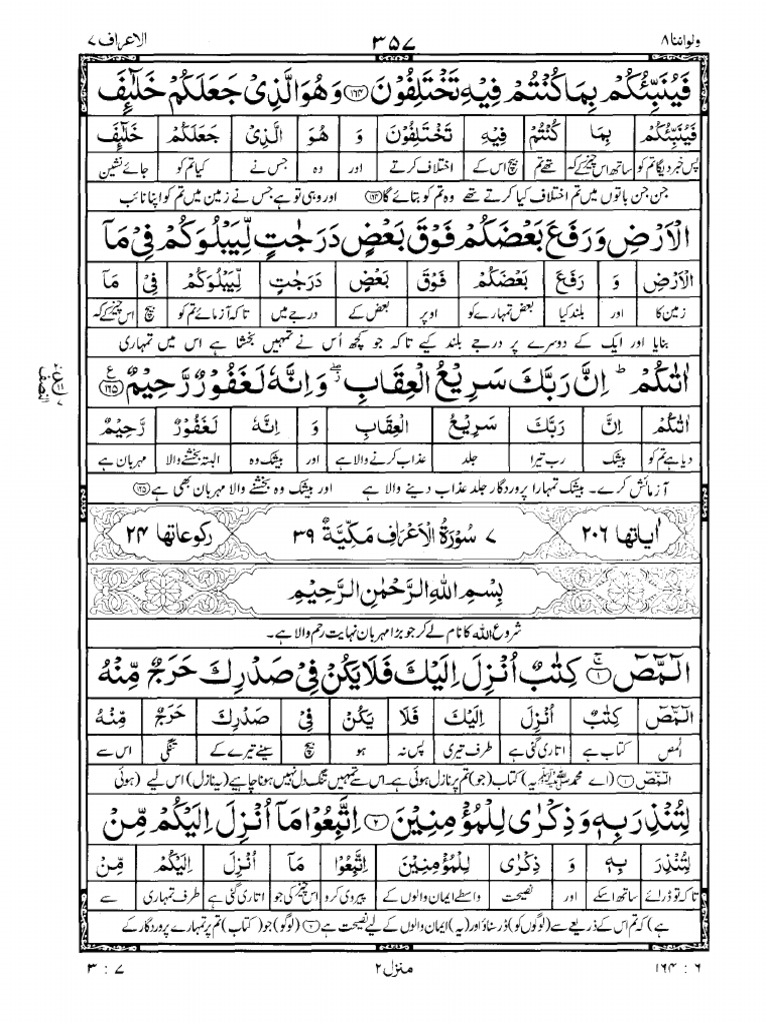 ولواننا ۸ ۳۵۷ الاعراف ۷
فَیُنَبِّئُکُمْ بِمَا کُنْتُمْ فِیْهِ تَخْتَلِفُوْنَ ﴿۱۶۴﴾ وَهُوَ الَّذِیْ جَعَلَکُمْ خَلٰٓئِفَ
فَیُنَبِّئُکُمْ بِمَا کُنْتُمْ فِیْهِ تَخْتَلِفُوْنَ وَ هُوَ الَّذِیْ جَعَلَکُمْ خَلٰٓئِفَ
پس خبر دیگا تم کو ساتھ اس چیز کے کہ تھے تم بیچ اس کے اختلاف کرتے اور وہ جس نے کیا تم کو جائے نشین
جن جن باتوں میں تم اختلاف کیا کرتے تھے وہ تم کو بتائے گا ﴿۱۶۴﴾ اور وہی تو ہے جس نے زمین میں تم کو اپنا نائب
الْاَرْضِ وَرَفَعَ بَعْضَکُمْ فَوْقَ بَعْضٍ دَرَجٰتٍ لِّیَبْلُوَکُمْ فِیْ مَآ
الْاَرْضِ وَ رَفَعَ بَعْضَکُمْ فَوْقَ بَعْضٍ دَرَجٰتٍ لِّیَبْلُوَکُمْ فِیْ مَآ
زمین کا اور بلند کیا بعض تمہارے کو اوپر بعض کے درجے میں تاکہ آزمائے تم کو بیچ اس چیز کے کہ
بنایا اور ایک کے دوسرے پر درجے بلند کیے تاکہ جو کچھ اُس نے تمہیں بخشا ہے اس میں تمہاری
اٰتٰکُمْ ؕ اِنَّ رَبَّکَ سَرِیْعُ الْعِقَابِ ۖ وَاِنَّهٗ لَغَفُوْرٌ رَّحِیْمٌ ﴿۱۶۵﴾ ع
اٰتٰکُمْ اِنَّ رَبَّکَ سَرِیْعُ الْعِقَابِ وَ اِنَّهٗ لَغَفُوْرٌ رَّحِیْمٌ
دیا ہے تم کو بیشک رب تیرا جلد عذاب کرنے والا ہے اور بیشک وہ البتہ بخشنے والا مہربان ہے
آزمائش کرے۔ بیشک تمہارا پروردگار جلد عذاب دینے والا ہے اور بیشک وہ بخشنے والا مہربان بھی ہے ﴿۱۶۵﴾
اٰیاتها ۲۰۶ ۷ سُوْرَةُ الْاَعْرَافِ مَکِّیَّةٌ ۳۹ رکوعاتها ۲۴
بِسْمِ اللهِ الرَّحْمٰنِ الرَّحِیْمِ
شروع الله کا نام لے کر جو بڑا مہربان نہایت رحم والا ہے۔
الٓمّٓصٓ ﴿۱﴾ کِتٰبٌ اُنْزِلَ اِلَیْکَ فَلَا یَکُنْ فِیْ صَدْرِکَ حَرَجٌ مِّنْهُ
الٓمّٓصٓ کِتٰبٌ اُنْزِلَ اِلَیْکَ فَلَا یَکُنْ فِیْ صَدْرِکَ حَرَجٌ مِّنْهُ
المص کتاب ہے اتاری گئی ہے طرف تیری پس نہ ہو بیچ سینے تیرے کے تنگی اس سے
الٓمّٓصٓ ﴿۱﴾ (اے محمد ﷺ یہ) کتاب (جو) تم پر نازل ہوئی ہے۔ اس سے تمہیں تنگ دل نہیں ہونا چاہیے (یہ نازل) اس لیے (ہوئی
لِتُنْذِرَ بِهٖ وَذِکْرٰی لِلْمُؤْمِنِیْنَ ﴿۲﴾ اِتَّبِعُوْا مَآ اُنْزِلَ اِلَیْکُمْ مِّنْ
لِتُنْذِرَ بِهٖ وَ ذِکْرٰی لِلْمُؤْمِنِیْنَ اِتَّبِعُوْا مَآ اُنْزِلَ اِلَیْکُمْ مِّنْ
تاکہ تو ڈرائے ساتھ اسکے اور نصیحت واسطے ایمان والوں کے پیروی کرو اس چیز کی جو اتاری گئی ہے طرف تمہاری سے
ہے) کہ تم اس کے ذریعے سے (لوگوں کو) ڈر سناؤ اور (یہ) ایمان والوں کے لیے نصیحت ہے ﴿۲﴾ (لوگو) جو (کتاب) تم پر تمہارے پروردگار کے
۶ : ۱۶۴ منزل ۲ ۷ : ۳